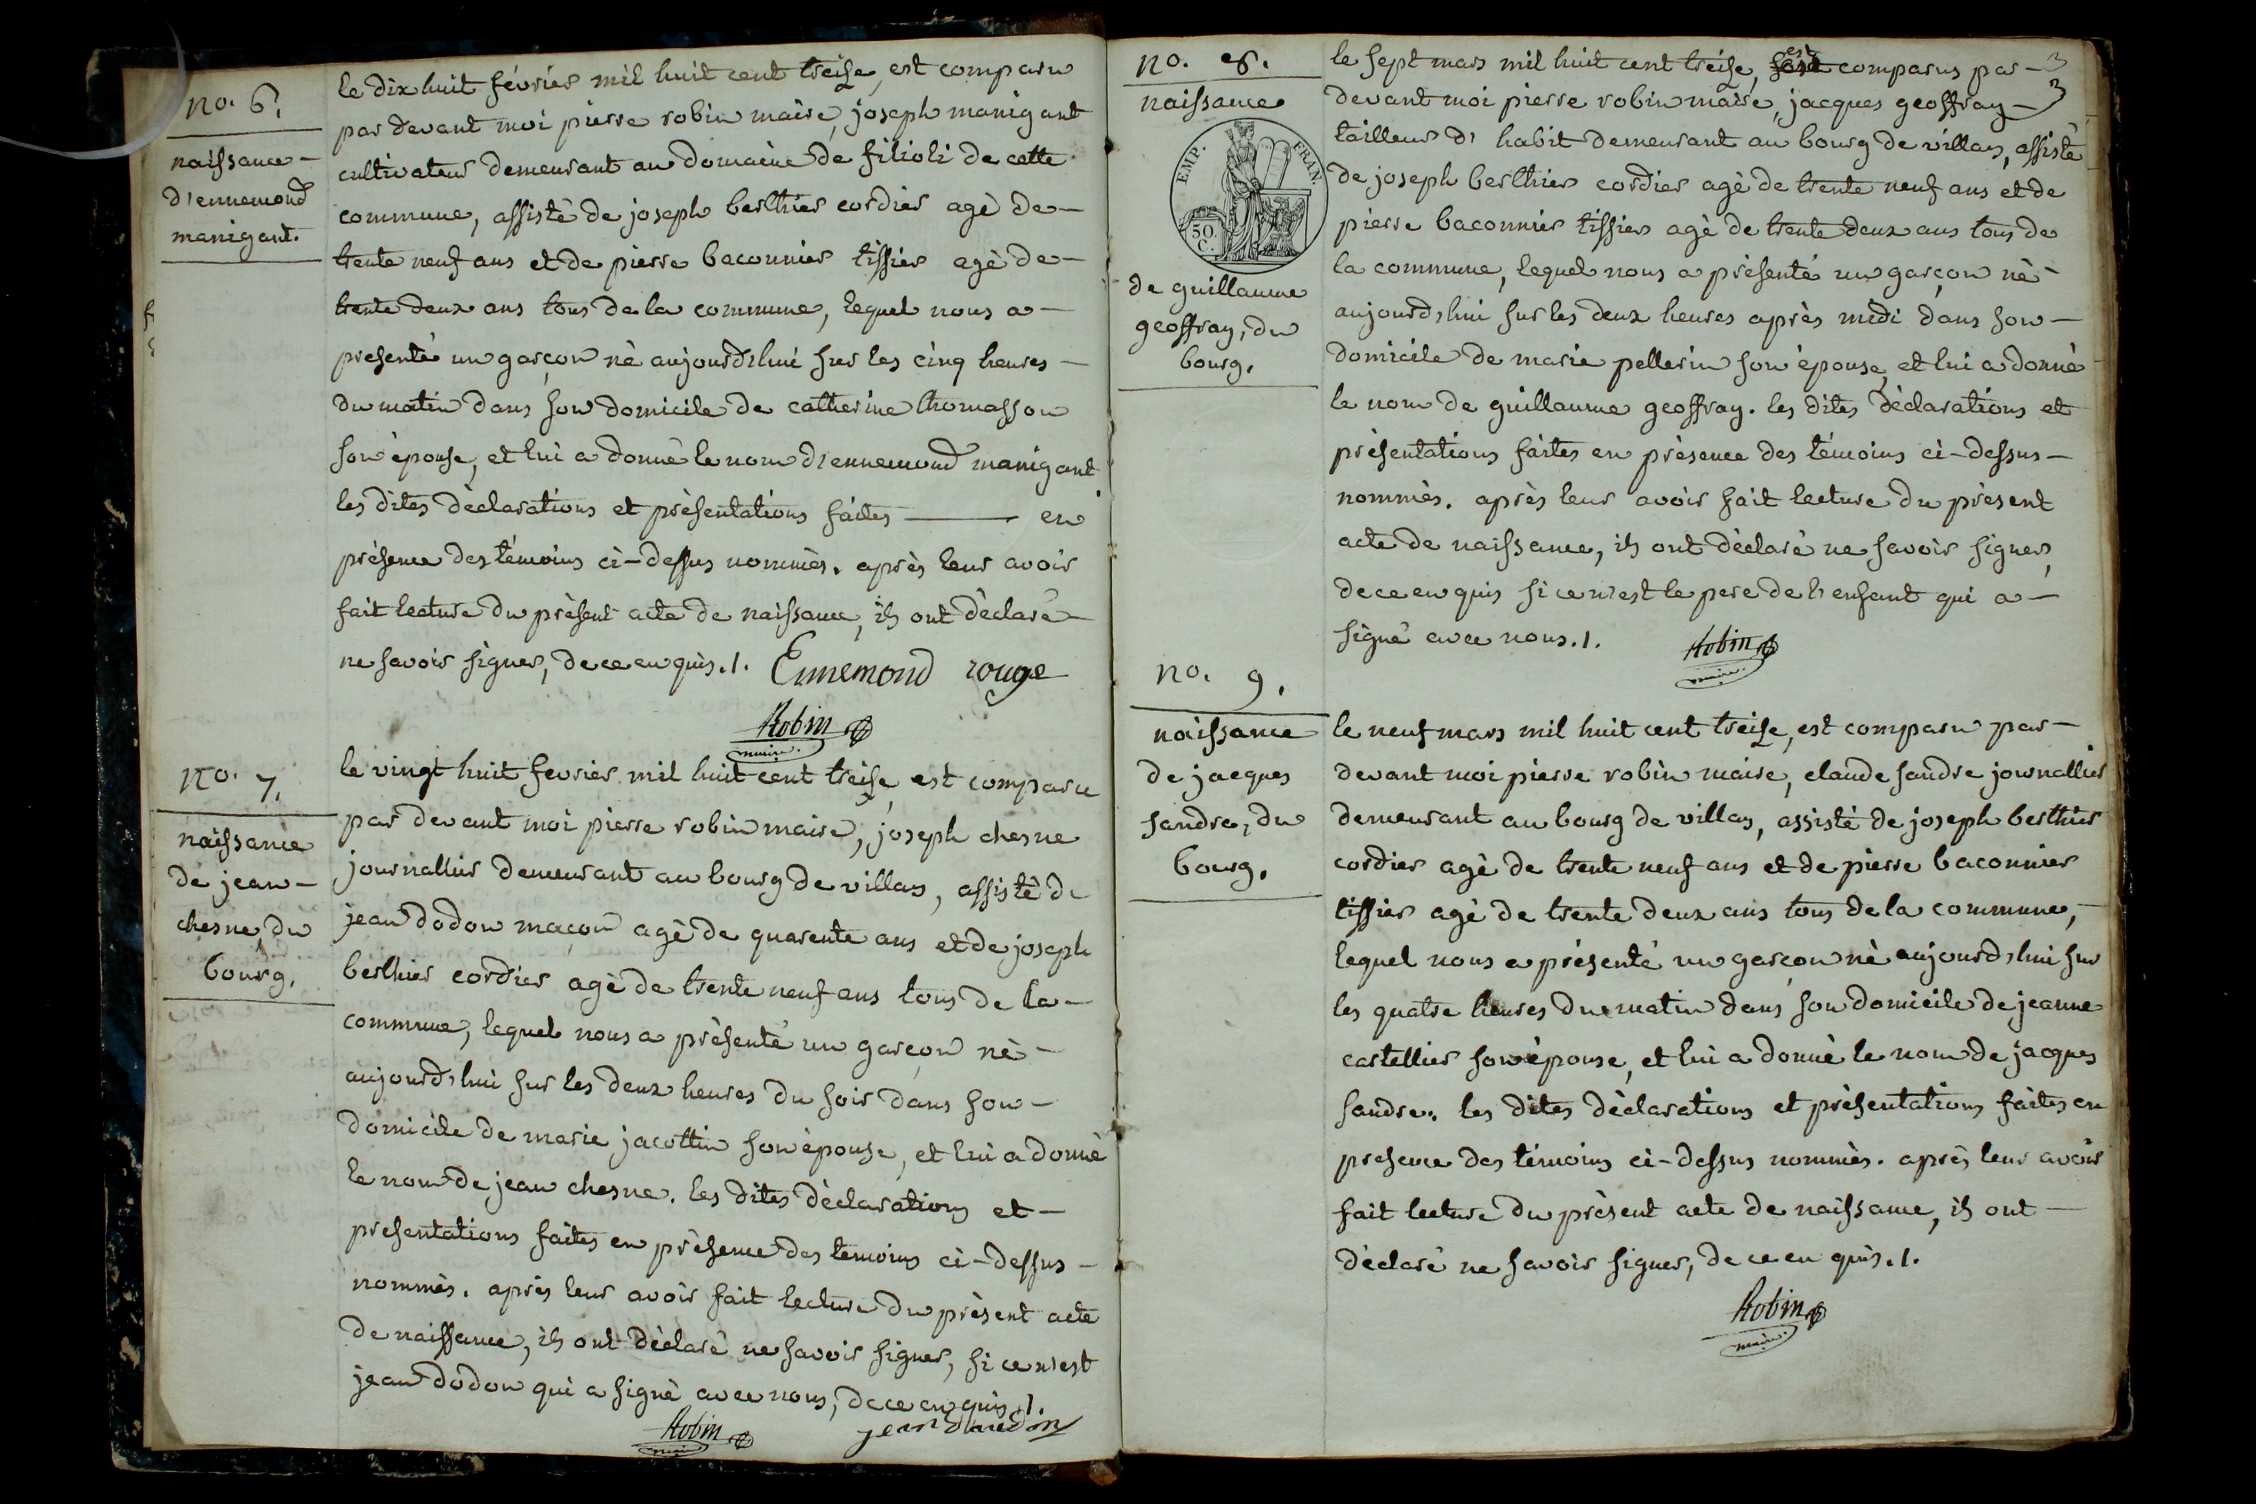 no. 6.
naissance –
d'ennemond
manigant.
le dix huit février mil huit cent treise, est comparu
par devant moi pierre robin maire, joseph manigant
cultivateur demeurant au domaine de filioli de cette
commune, assistè de joseph berthier cordier agè de –
trente neuf ans et de pierre baconnier tissier agè de –
trente deux ans tous de la commune, lequel nous a –
presenté un garçon nè aujourd'hui sur les cinq heures –
du matin dans son domicile de catherine thomasson
son èpouse, et lui a donnè le nom d'ennemond manigant.
les dites dèclarations et prèsentations faites ——— en
prèsence des tèmoins ci-dessus nommès. après leur avoir
fait lecture du prèsent acte de naissance, ils ont dèclarè –
ne savoir signer, de ce enquis./. Ennemond rouge
Robin
maire.
no. 7.
naissance
de jean –
chesne, du
bourg.
le vingt huit fevrier mil huit cent treise, est comparu
par devant moi pierre robin maire, joseph chesne
journallier demeurant au bourg de villars, assistè de
jean dodon maçon agè de quarente ans et de joseph
berthier cordier agè de trente neuf ans tous de la –
commune, lequel nous a prèsentè un garçon nè –
aujourd'hui sur les deux heures du soir dans son –
domicile de marie jacottin son èpouse, et lui a donnè
le nom de jean chesne. les dites dèclarations et –
presentations faites en prèsence des temoins ci-dessus –
nommès. après leur avoir fait lecture du prèsent acte
de naissance, ils ont dèclarè ne savoir signer, si ce n'est
jean dodon qui a signè avec nous, de ce enquis./.
Robin
maire
jean
no. 8.
naissance
EMP. FRAN.
50.
C.
de guillaume
geoffray, du
bourg.
3
3
est
le sept mars mil huit cent treise, sont comparus par –
devant moi pierre robin maire, jacques geoffray –
tailleur d'habit demeurant au bourg de villars, assistè
de joseph berthier cordier agè de trente neuf ans et de
pierre baconnier tissier agè de trente deux ans tous de
la commune, lequel nous a prèsentè un garçon nè –
aujourd'hui sur les deux heures après midi dans son –
domicile de marie pellerin son èpouse, et lui a donnè
le nom de guillaume geoffray. les dites dèclarations et
prèsentations faites en prèsence des tèmoins ci-dessus –
nommès. après leur avoir fait lecture du prèsent
acte de naissance, ils ont dèclarè ne savoir signer,
de ce enquis si ce n'est le pere de l'enfant qui a –
signè avec nous./.
Robin
maire.
no. 9.
naissance
de jacques
sandre, du
bourg.
le neuf mars mil huit cent treise, est comparu par –
devant moi pierre robin maire, claude sandre journallier
demeurant au bourg de villars, assistè de joseph berthier
cordier agè de trente neuf ans et de pierre baconnier
tissier agè de trente deux ans tous de la commune, –
lequel nous a prèsentè un garçon nè aujourd'hui sur
les quatre heures du matin dans son domicile de jeanne
cartellier son èpouse, et lui a donnè le nom de jacques
sandre. les dites dèclarations et prèsentations faites en
presence des tèmoins ci-dessus nommès. après leur avoir
fait lecture du prèsent acte de naissance, ils ont –
dèclarè ne savoir signer, de ce enquis./.
Robin
maire.